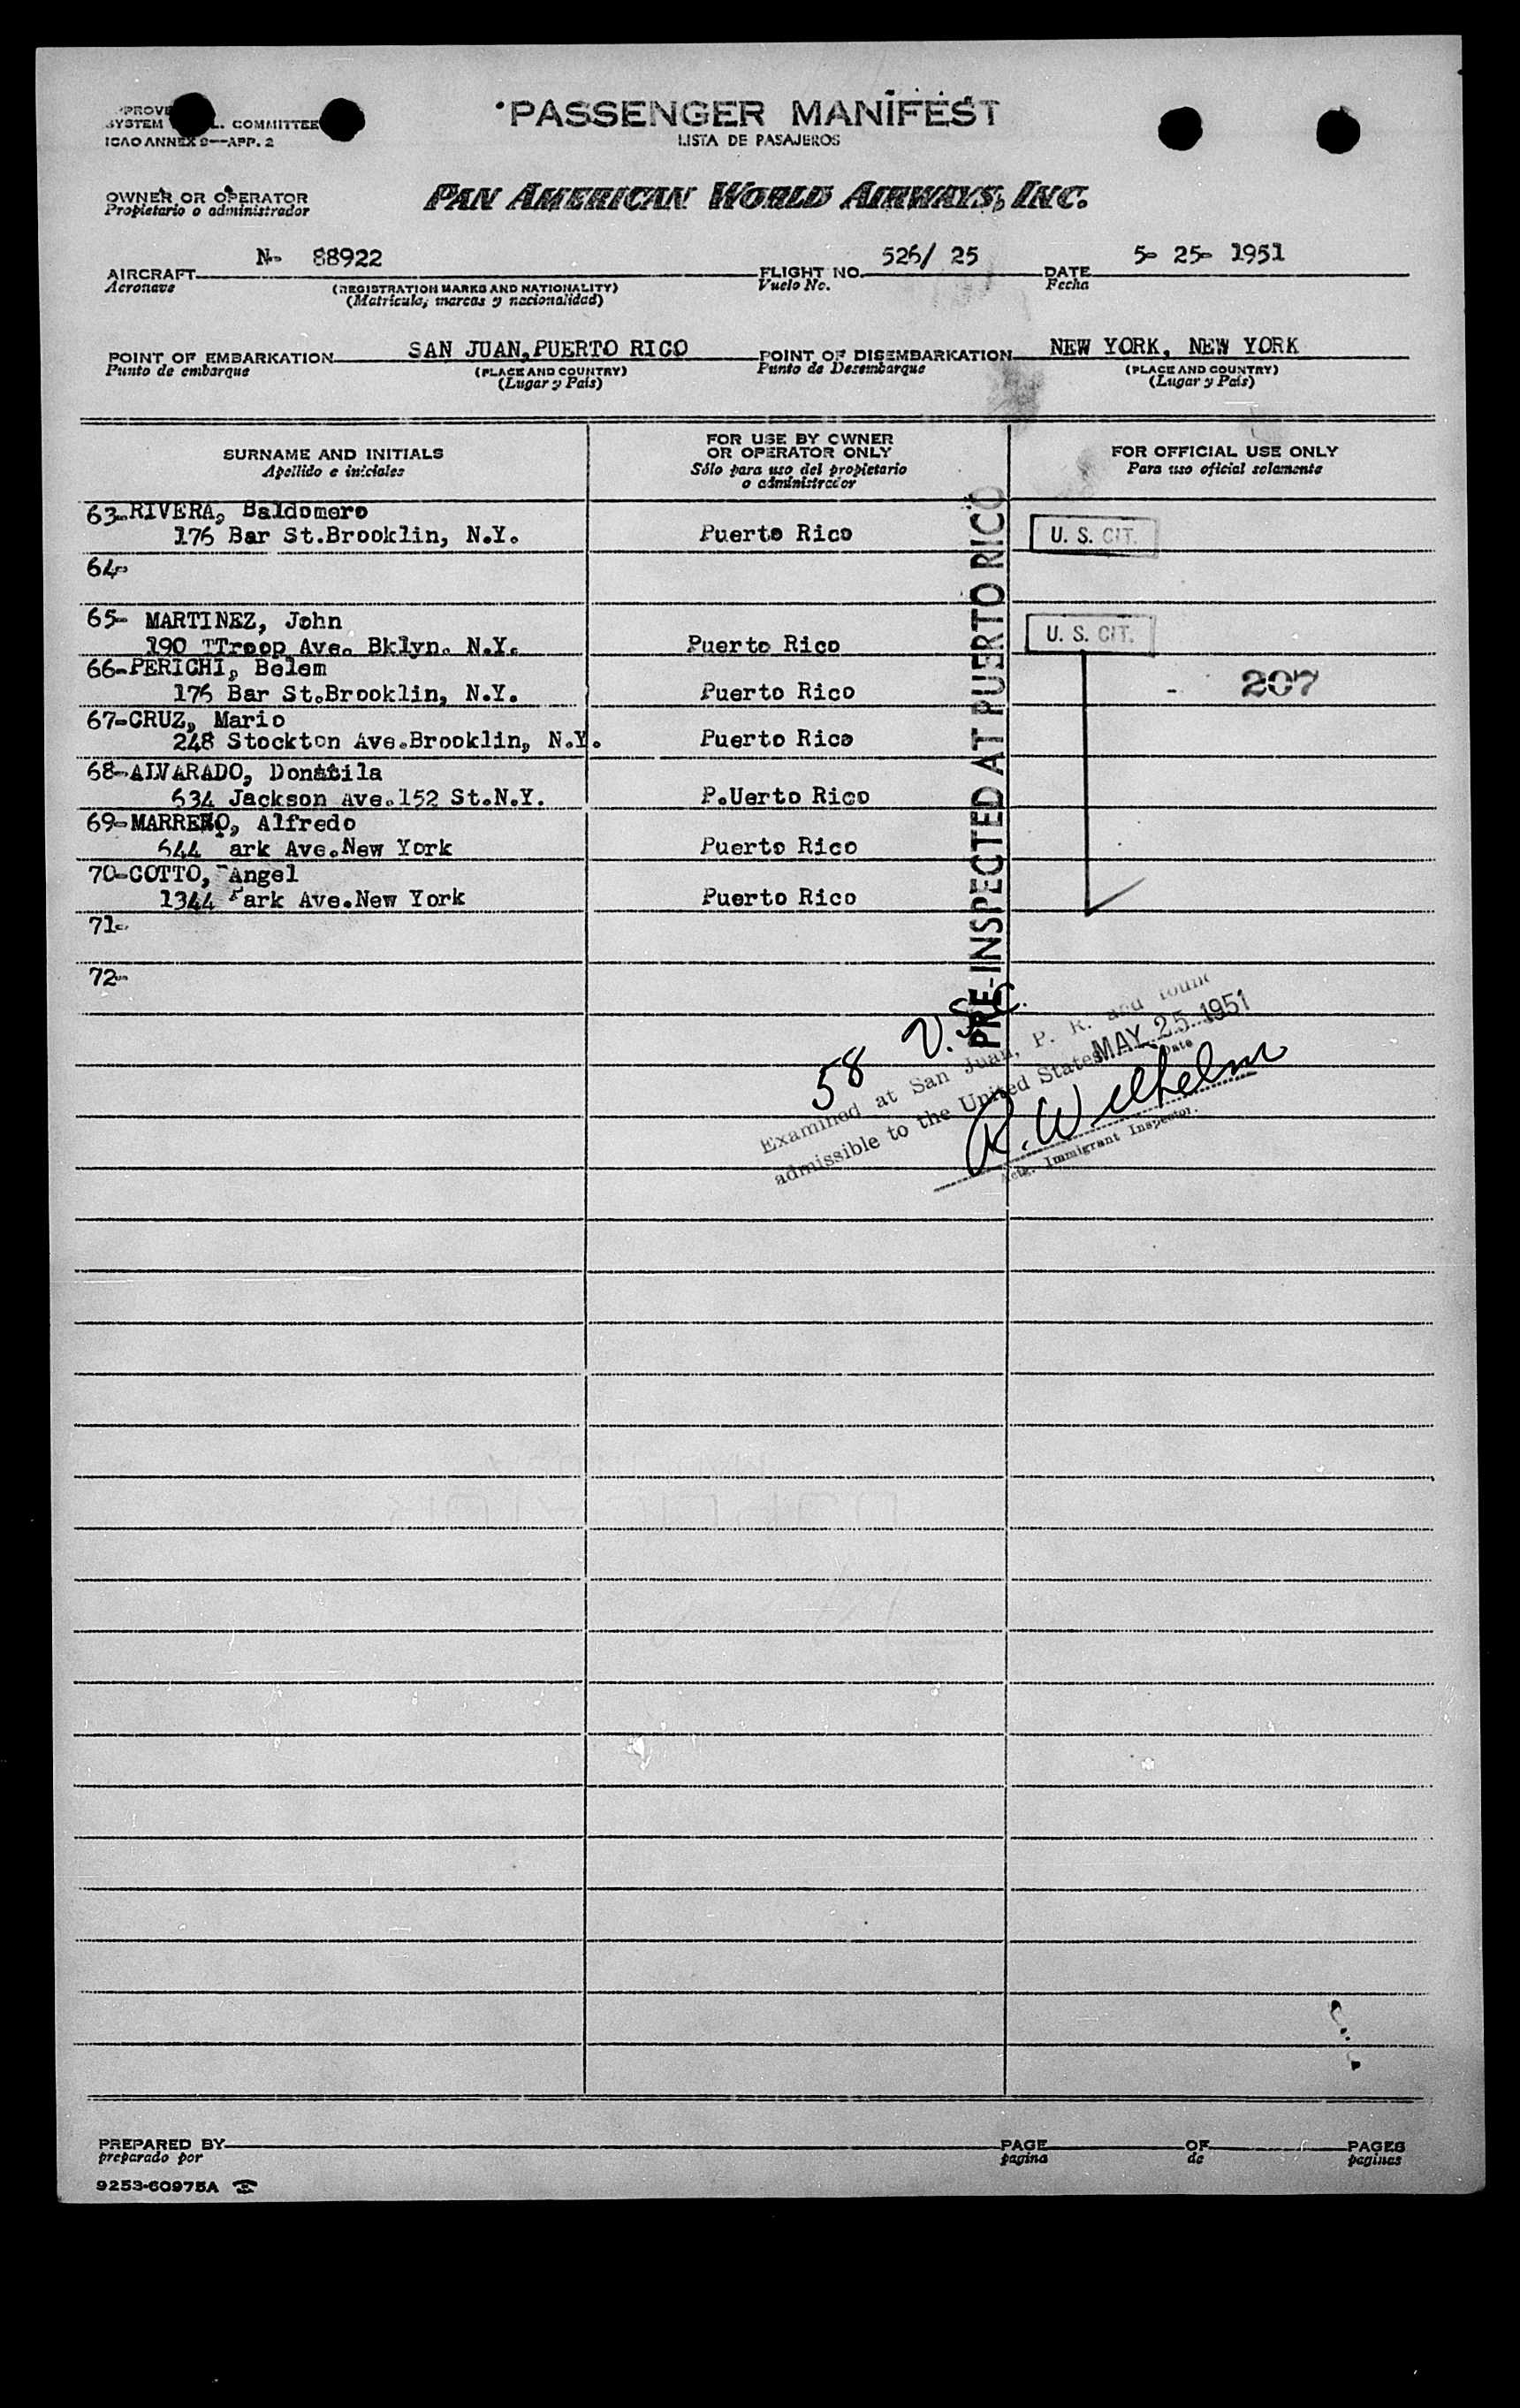 PASSENGER MANIFEST
LISTA DE PASAJEROS
SYSTEM COMMITTEE
ICAO ANNEX 9—APP. 2
OWNER OR OPERATOR
Propietario o administrador
PAN AMERICAN WORLD AIRWAYS, INC.
N- 88922
526/ 25
5- 25- 1951
AIRCRAFT
FLIGHT NO.
DATE
Aeronave
(REGISTRATION MARKS AND NATIONALITY)
Vuelo No.
Fecha
(Matricula, marcas y nacionalidad)
SAN JUAN,PUERTO RICO
NEW YORK, NEW YORK
POINT OF EMBARKATION
POINT OF DISEMBARKATION
Punto de embarque
(PLACE AND COUNTRY)
Punto de Desembarque
(PLACE AND COUNTRY)
(Lugar y País)
(Lugar y País)
SURNAME AND INITIALS
Apellido e iniciales
FOR USE BY OWNER
OR OPERATOR ONLY
Sólo para uso del propietario
o administrador
FOR OFFICIAL USE ONLY
Para uso oficial solamente
63-RIVERA, Baldomero
176 Bar St.Brooklin, N.Y. Puerto Rico U. S. CIT.
64-
65- MARTINEZ, John
190 TTroop Ave. Bklyn. N.Y. Puerto Rico U. S. CIT.
66-PERICHI, Belem
176 Bar St.Brooklin, N.Y. Puerto Rico - 207
67-CRUZ, Mario
248 Stockton Ave.Brooklin, N.Y. Puerto Rico
68-ALVARADO, Donatila
634 Jackson Ave.152 St.N.Y. P.Uerto Rico
69-MARRERO, Alfredo
644 ark Ave.New York Puerto Rico
70-COTTO, Angel
1344 Park Ave.New York Puerto Rico
71-
72-
PRE-INSPECTED AT PUERTO RICO
58 U.S.C.
Examined at San Juan, P. R. and found
admissible to the United States MAY 25 1951
Date
R. Wilhelm
Actg. Immigrant Inspector.
PREPARED BY
PAGE
OF
PAGES
preparado por
pagina
de
paginas
9253-60975A